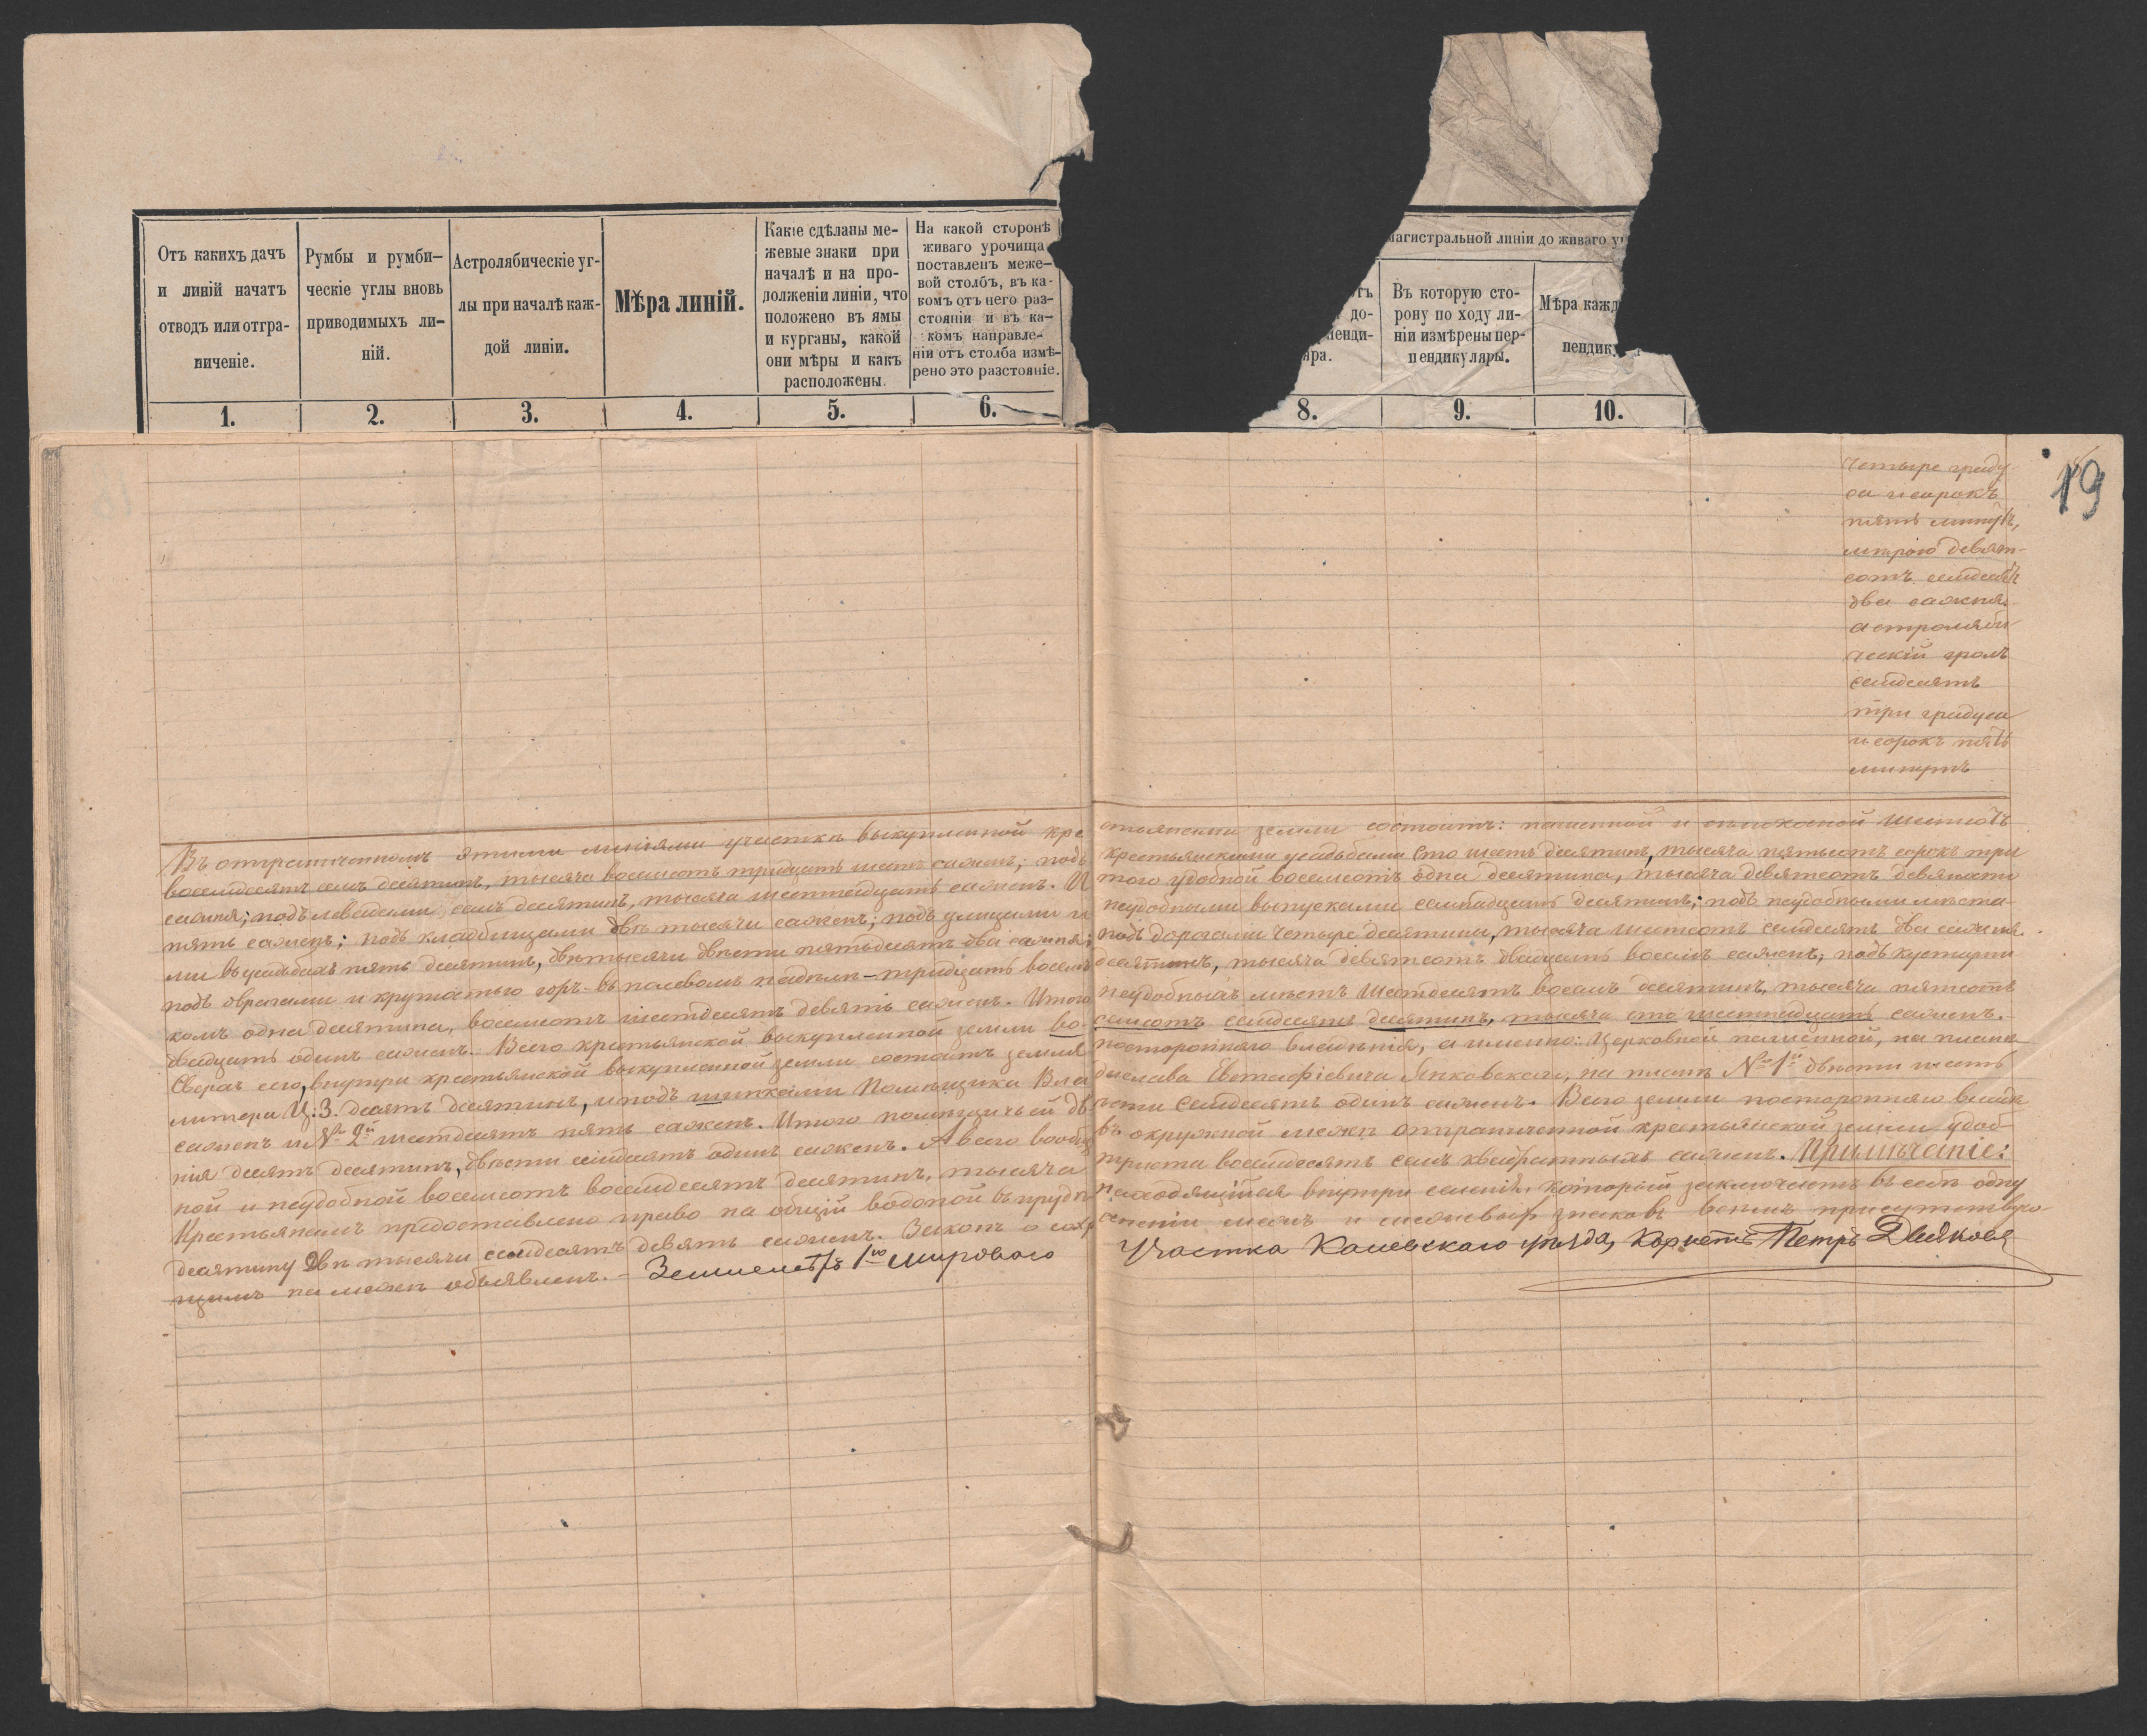 Отъ какихъ дачъ
и линій начатъ
отводъ или отгра-
ниченіе.
Румбы и румби-
ческіе углы вновь
приводимыхъ ли-
ній.
Астролябическіе уг-
лы при началѣ каж-
дой линіи.
Мѣра линій.
Какіе сдѣланы ме-
жевые знаки при
началѣ и на про-
долженіи линіи, что
положено въ ямы
и курганы, какой
они мѣры и какъ
расположены.
На какой сторонѣ
живаго урочища
поставленъ меже-
вой столбъ, въ ка-
комъ отъ него раз-
стояніи и въ ка-
комъ направле-
ніи отъ столба измѣ-
рено это разстояніе.
магистральной линіи до живаго
до-
пенди-
яра.
Въ которую сто-
рону по ходу ли-
ніи измѣрены пер-
пендикуляры.
Мѣра кажд
пендику
1. 2. 3. 4. 5. 6. 8. 9. 10.
19
четыре граду
са и сорокъ
пять минутъ,
мѣрою девят-
сотъ семдесятъ
два сажня
астроляби
ческій уголъ
семдесятъ
три градуса
и сорокъ пять
минутъ
Въ отграниченномъ этими линіями участкѣ выкупленной кре
стьянами земли состоитъ: пашенной и сѣнокосной шестьсотъ
восемдесятъ семь десятинъ, тысяча восемсотъ тридцать шесть сажень; подъ
крестьянскими усадьбами сто шесть десятинъ, тысяча пятьсотъ сорокъ три
сажня; подъ левадами семь десятинъ, тысяча шестнадцать сажень. И
того удобной восемсотъ одна десятина, тысяча девятсотъ девяносто
пять сажень; подъ кладбищами двѣ тысячи сажень; подъ улицами и
неудобными выпусками семнадцать десятинъ; подъ неудобными мѣста-
ми въ усадьбахъ пять десятинъ, двѣ тысячи двѣсти пятьдесятъ два сажня;
подъ дорогами четыре десятины, тысяча шестсотъ семдесятъ два сажня
подъ оврагами и крутостью горъ - въ полевомъ надѣлѣ - тридцать восемь
десятинъ, тысяча девятсотъ двадцать восемь сажень; подъ кустарни
комъ одна десятина, восемсотъ шестдесятъ девять сажень. Итого
неудобныхъ мѣстъ шестдесятъ восемь десятинъ, тысяча пятсотъ
двадцать одинъ сажень. Всего крестьянской выкупленной земли во-
семсотъ семдесятъ десятинъ, тысяча сто шестнадцать сажень.
Сверхъ сего, внутри крестьянской выкупленной земли состоитъ земля
посторонняго владѣнія, а именно: Церковной пашенной, на планѣ
литера Ц:З. десять десятинъ, и подъ шинками Помѣщика Вла
дислава Евстафіевича Янковскаго, на планѣ № 1й двѣсти шесть
сажень и № 2й шестдесятъ пять сажень. Итого помѣщичьей дв
ѣсти семдесятъ одинъ сажень. Всего земли посторонняго владѣ
нія десять десятинъ, двѣсти семдесятъ одинъ сажень. А всего вообще
въ окружной межѣ отграниченной крестьянской земли удоб-
ной и неудобной восемсотъ восемдесятъ десятинъ, тысяча
триста восемдесятъ семь квадратныхъ сажень. Примѣчаніе:
Крестьянамъ предоставлено право на общій водопой въ прудѣ
находящійся внутри селенія, который заключаетъ въ себѣ одну
десятину двѣ тысячи семдесятъ девять сажень. Законъ о сохр
аненіи межъ и межевыхъ знаковъ всѣмъ присутствую-
щимъ на межѣ объявленъ. - Землемѣръ 1го Мироваго
Участка Каневскаго уѣзда, Корнетъ Петръ Дьяковъ